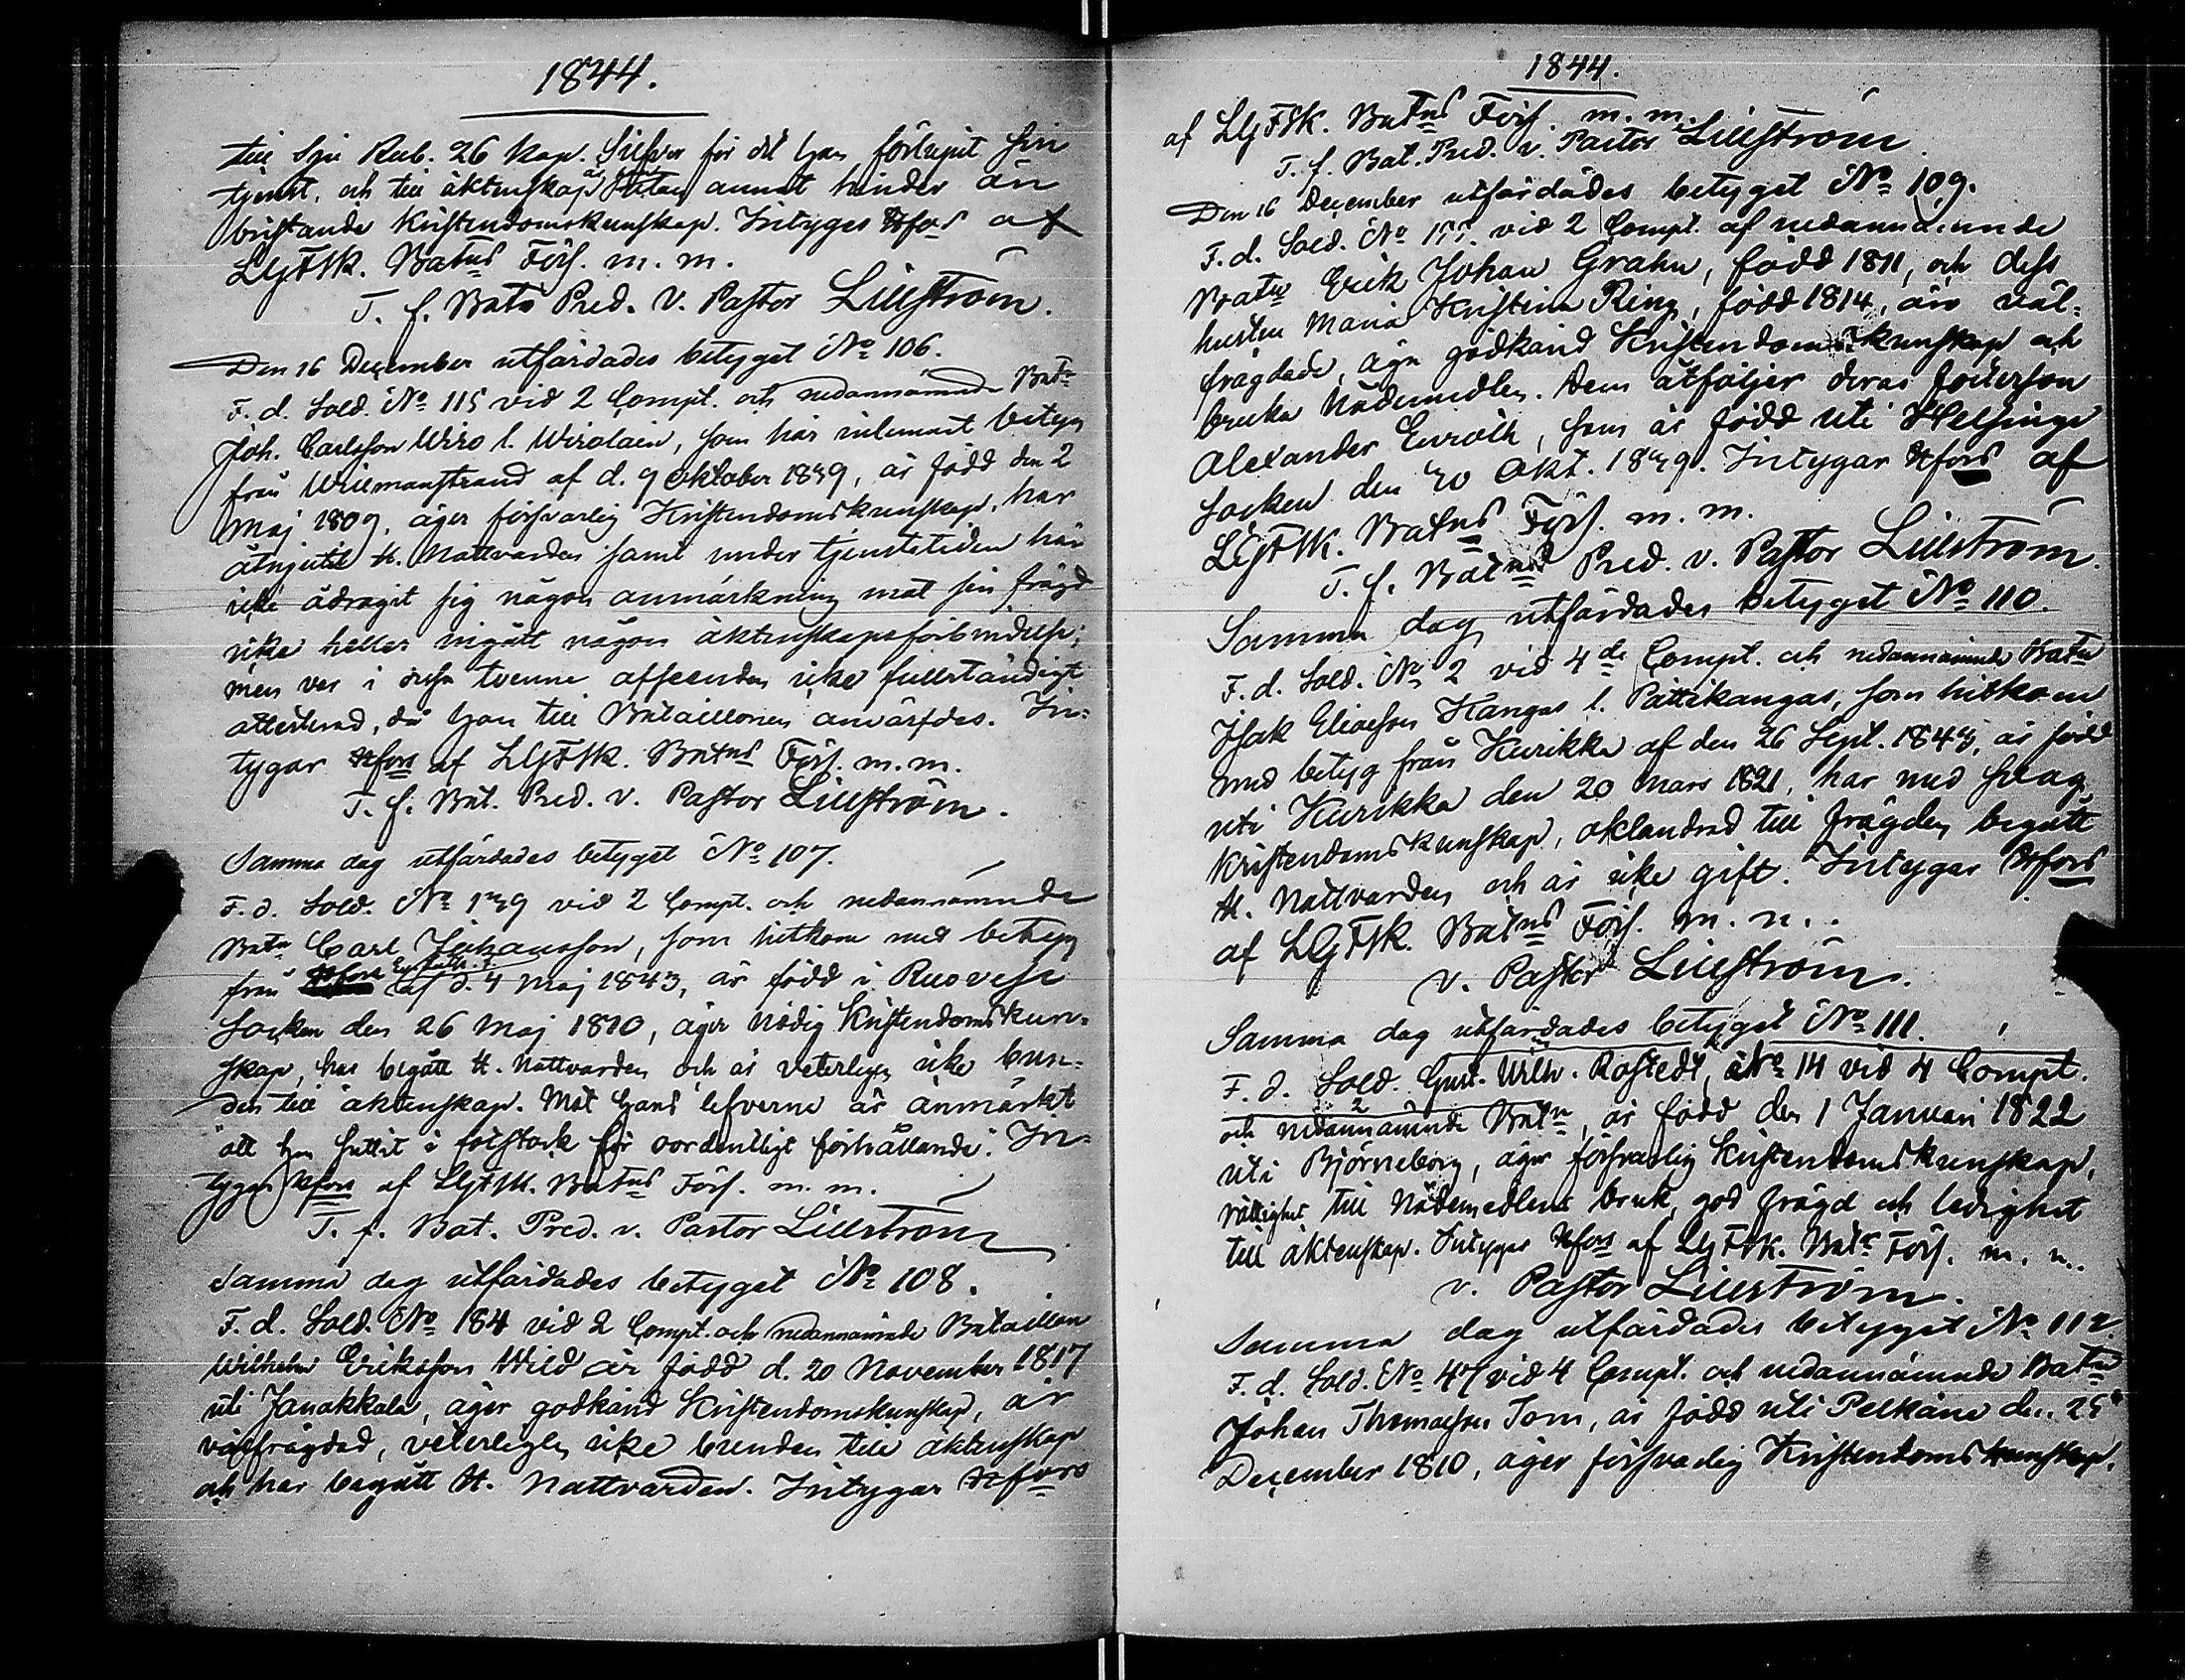 1844.
till Rub. 26 kop. Silfver för det han förlupit sin
tjenst, och till äktenskap är utan annat hinder än
bristande Kristendomskunskap. Intygar Hfors af
LGFSk. Batns Förs. m. m.
T. f. Bats Pred. V. Pastor Lillström.
Den 16 December utfärdades betyget No 106.
F. d. Sold. No 115 vid 2 Compt. och nedannämnde Batn
Joh. Carlsson Wiro l. Wirolain, som här inlemnat betyg
från Willmanstrand af d. 9 Oktober 1839, är född den 2
Maj 1809, äger försvarlig Kristendomskunskap, har
åtnjutit H. Nattvarden samt under tjenstetiden här
icke ådragit sig någon anmärkning mot sin frägd
icke heller ingått någon äktenskapsförbindelse;
men var i dessa tvenne afseenden icke fullständigt
attesterad, då han till Bataillonen anvärfdes. In-
tygar Hfors af LGFSk. Batns Förs. m. m.
T. f. Bat. Pred. v. Pastor Lillström.
Samma dag utfärdades betyget No 107.
F. d. Sold. No 139 vid 2 Compt. och nedannämnde
Batn Carl Johansson, som hitkom med betyg
från af d. 4 Maj 1843, är född i Ruovesi
Socken den 26 Maj 1810, äger nödig Kristendomskun-
skap, har begått H. Nattvarden och är veterligen icke bun-
den till äktenskap. Mot hans lefverne är anmärkt
"att han suttit i fotstock för oordentligt förhållande". In-
tygar Hfors af LGFSk. Batns Förs. m. m.
T. f. Bat. Pred. v. Pastor Lillström
Samma dag utfärdades betyget No 108.
F. d. Sold. No 184 vid 2 Compt. och nedannämnde Bataillon
Wilhelm Eriksson Wild är född d. 20 November 1817
uti Janakkala, äger godkänd Kristendomskunskap, är
välfrägdad, veterligen icke bunden till äktenskap
och har begått H. Nattvarden. Intygar Hfors
1844.
af LGFSk. Batns Förs. m. m.
T. f. Bat. Pred. v. Pastor Lillström
Den 16 December utfärdades betyget No 109.
F. d. Sold. No 155 vid 2 Compt. af nedannämnde
Batn Erik Johan Grahn, född 1811, och dess
hustru Maria Kristina Ring, född 1814, äro väl-
frägdade, äga godkänd Kristendomskunskap och
bruka Nådemedlen. Dem åtföljer deras fosterson
Alexander Enroth, som är född uti Helsinge
Socken den 30 Okt. 1839. Intygar Hfors af
LGFSk. Batns Förs. m. m.
T. f. Batns Pred. v. Pastor Lillström.
Samma dag utfärdades betyget No 110.
F. d. Sold. No 2 vid 4de Compt. och nedannämnde Batn
Isak Eliasson Kangas l. Pättikangas, som hitkom
med betyg från Kurikka af den 26 Sept. 1843, är född
uti Kurikka den 20 Mars 1821, har med svag
Kristendomskunskap, oklandrad till frägden begått
H. Nattvarden och är icke gift. Intygar Hfors
af LGFSk. Batns Förs. m. m.
v. Pastor Lillström.
Samma dag utfärdades betyget No 111.
F. d. Sold. Gust. Wilh. Rostedt, No 14 vid 4 Compt.
och nedannämnde Batn, är född den 1 Januari 1822
uti Björneborg, äger försvarlig Kristendomskunskap,
rättighet till Nådemedlens bruk, god frägd och ledighet
till äktenskap. Intygar Hfors af LGFSk. Batn Förs. m. m.
v. Pastor Lillström.
Samma dag utfärdades betyget No 112.
F. d. Sold. No 47 vid 4 Compt. och nedannämnde Batn
Johan Thomasson Tom, är född uti Pelkäne den 25
December 1810, äger försvarlig Kristendomskunskap,